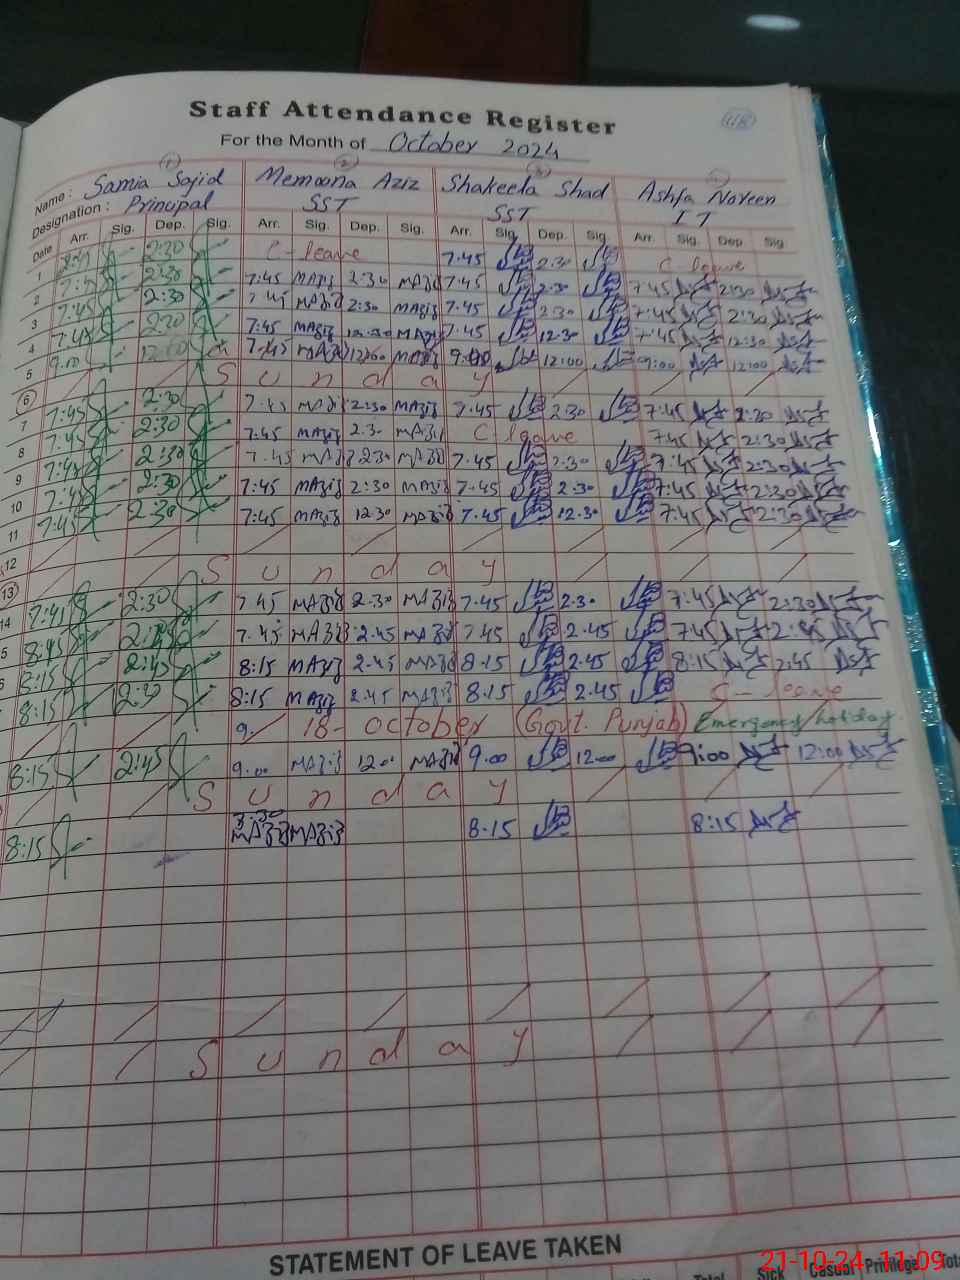 Staff Attendance Register
118
For the Month of October 2024
1 2 3 4
Name : Samia Sajid Memoona Aziz Shakeela Shad Ashfa Noreen
Designation : Principal SST SST IT
Date Arr. Sig. Dep. Sig. Arr. Sig. Dep. Sig. Arr. Sig. Dep. Sig. Arr. Sig. Dep. Sig.
1 2:30 C-leave 7.45 2:30 C-leave
2 2:30 7:45 MAziz 2:30 MAziz 7:45 2:30 7:45 2:30
3 7:45 2:30 7:45 MAziz 2:30 MAziz 7.45 2:30 7:45 2:30
4 7:45 2:30 7:45 MAziz 12:30 MAziz 7.45 12.30 7:45 12:30
5 9:00 7:45 MAziz 12:00 MAziz 9:00 12:00 9:00 12:00
6 Sunday
7 7:45 2:30 7:45 MAziz 2:30 MAziz 7.45 2:30 7:45 2:30
8 7:45 2:30 7:45 MAziz 2:30 MAziz C-leave 7:45 2:30
9 7:45 2:30 7:45 MAziz 2:30 MAziz 7.45 2:30 7:45 2:30
10 7:45 2:30 7:45 MAziz 2:30 MAziz 7.45 2:30 7:45 2:30
11 7:45 2:30 7:45 MAziz 12:30 MAziz 7.45 12.30 7:45 2:30
12
13 Sunday
14 7:45 2:30 7:45 MAziz 2:30 MAziz 7.45 2.30 7:45 2:30
5 8:45 7:45 MAziz 2.45 MAziz 7.45 2.45 7:45 2:45
6 8:15 2:45 8:15 MAziz 2.45 MAziz 8.15 2.45 8:15 2:45
8:15 2:30 8:15 MAziz 2.45 MAziz 8.15 2.45 C-leave
9. 18- October (Govt. Punjab) Emergency holiday
8:15 2:45 9.00 MAziz 12:00 MAziz 9.00 12:00 9:00 12:00
Sunday
8:15 MAziz MAziz 8.15 8:15
Sunday
STATEMENT OF LEAVE TAKEN
Total Sick Casual Privilege
21-10-24 11:09